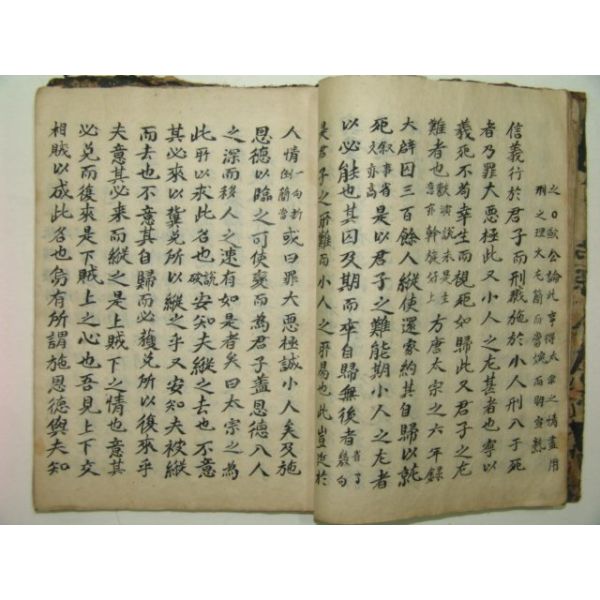 歐公論此事得太宗之情盡用
刑之理
信義行於君子而刑戮施於小人刑入于死
者乃罪大惡極此又小人之尤甚者也寧以
義死不苟幸生而視死如歸此又君子之尤
難者也 方唐太宗之六年錄
大辟囚三百餘人縱使還家約其自歸以就
死敘事省文亦高是以君子之難能期小人之尤者
以必能也其囚及期而卒自歸無後者
是君子之所難而小人之所易也此豈近於
人情一句折倒簡當或曰罪大惡極誠小人矣及施
恩德以臨之可使變而為君子盖恩德入人
之深而移人之速有如是者矣曰太宗之為
此所以求此名也說破安知夫縱之去也不意
其必來以冀免所以縱之乎又安知夫被縱
而去也不意其自歸而必獲免所以復來乎
夫意其必來而縱之是上賊下之情也意其
必免而後來是下賊上之心也吾見上下交
相賊以成此名也烏有所謂施恩德與夫知